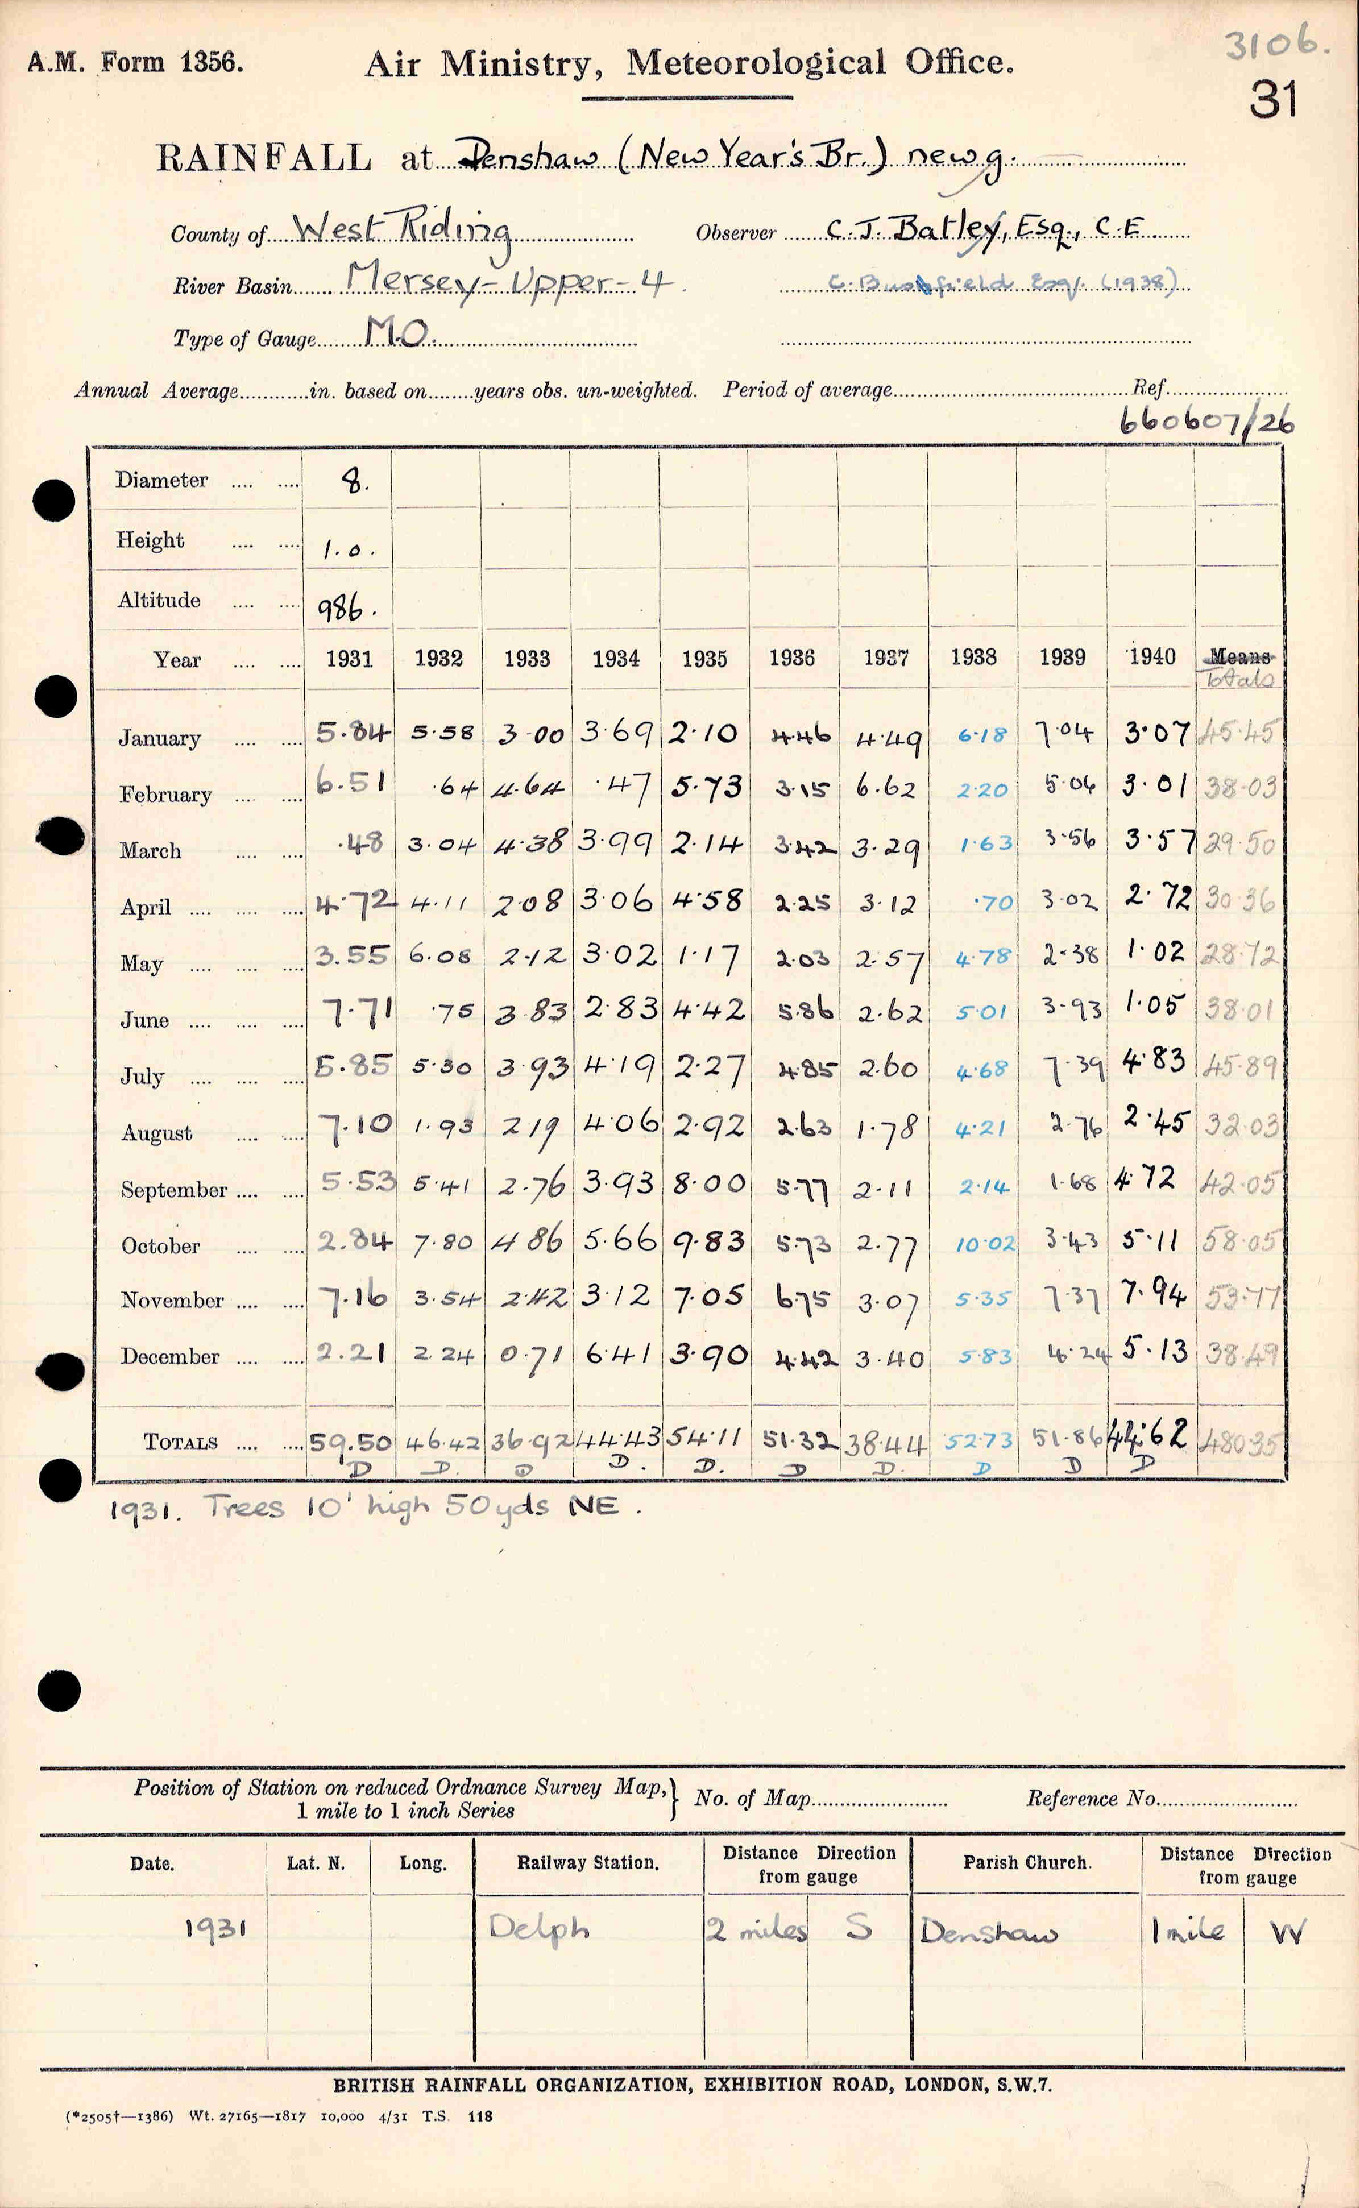 3106.
A.M. Form 1356. Air Ministry, Meteorological Office.
31
RAINFALL at Denshaw (New Year's Br.) new g.
County of West Riding Observer C. J. Batley, Esq., C.E
River Basin Mersey-Upper-4 Esq. (1938)
Type of Gauge M.O.
Annual Average............in. based on........years obs. un-weighted. Period of average........................................Ref.....................
660607/26
Diameter .... .... 8.
Height .... .... 1.0.
Altitude .... .... 986.
Year .... .... 1931 1932 1933 1934 1935 1936 1937 1938 1939 1940 Means
Totals
January .... .... 5.84 5.58 3.00 3.69 2.10 4.46 4.49 6.18 7.04 3.07 45.45
February .... .... 6.51 .64 4.64 .47 5.73 3.15 6.62 2.20 5.06 3.01 38.03
March .... .... .48 3.04 4.38 3.99 2.14 3.42 3.29 1.63 3.56 3.57 29.50
April .... .... .... 4.72 4.11 2.08 3.06 4.58 2.25 3.12 .70 3.02 2.72 30.36
May .... .... .... 3.55 6.08 2.12 3.02 1.17 2.03 2.57 4.78 2.38 1.02 28.72
June .... .... .... 7.71 .75 3.83 2.83 4.42 5.86 2.62 5.01 3.93 1.05 38.01
July .... .... .... 5.85 5.30 3.93 4.19 2.27 4.85 2.60 4.68 7.39 4.83 45.89
August .... .... 7.10 1.93 2.19 4.06 2.92 2.63 1.78 4.21 2.76 2.45 32.03
September .... .... 5.53 5.41 2.76 3.93 8.00 5.77 2.11 2.14 1.68 4.72 42.05
October .... .... 2.84 7.80 4.86 5.66 9.83 5.73 2.77 10.02 3.43 5.11 58.05
November .... .... 7.16 3.54 2.42 3.12 7.05 6.75 3.07 5.35 7.37 7.94 53.77
December .... .... 2.21 2.24 0.71 6.41 3.90 4.42 3.40 5.83 4.24 5.13 38.49
TOTALS .... .... 59.50 46.42 36.92 44.43 54.11 51.32 38.44 52.73 51.86 44.62 480.35
D D. D D. D. D D. D D D
1931. Trees 10' high 50yds NE.
Position of Station on reduced Ordnance Survey Map, } No. of Map........................ Reference No.........................
1 mile to 1 inch Series
Date. Lat. N. Long. Railway Station. Distance Direction Parish Church. Distance Direction
from gauge from gauge
1931 Delph 2 miles S Denshaw 1 mile W
BRITISH RAINFALL ORGANIZATION, EXHIBITION ROAD, LONDON, S.W.7.
(*2505†—1386) Wt. 27165—1817 10,000 4/31 T.S. 118